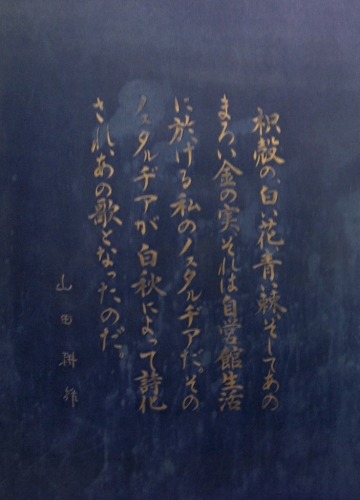 枳殻の、白い花、青い棘、そしてあの
まろい金の実、それは自営館生活
に於ける私のノスタルヂアだ。その
ノスタルヂアが白秋によって詩化
され、あの歌となったのだ。
山田耕筰